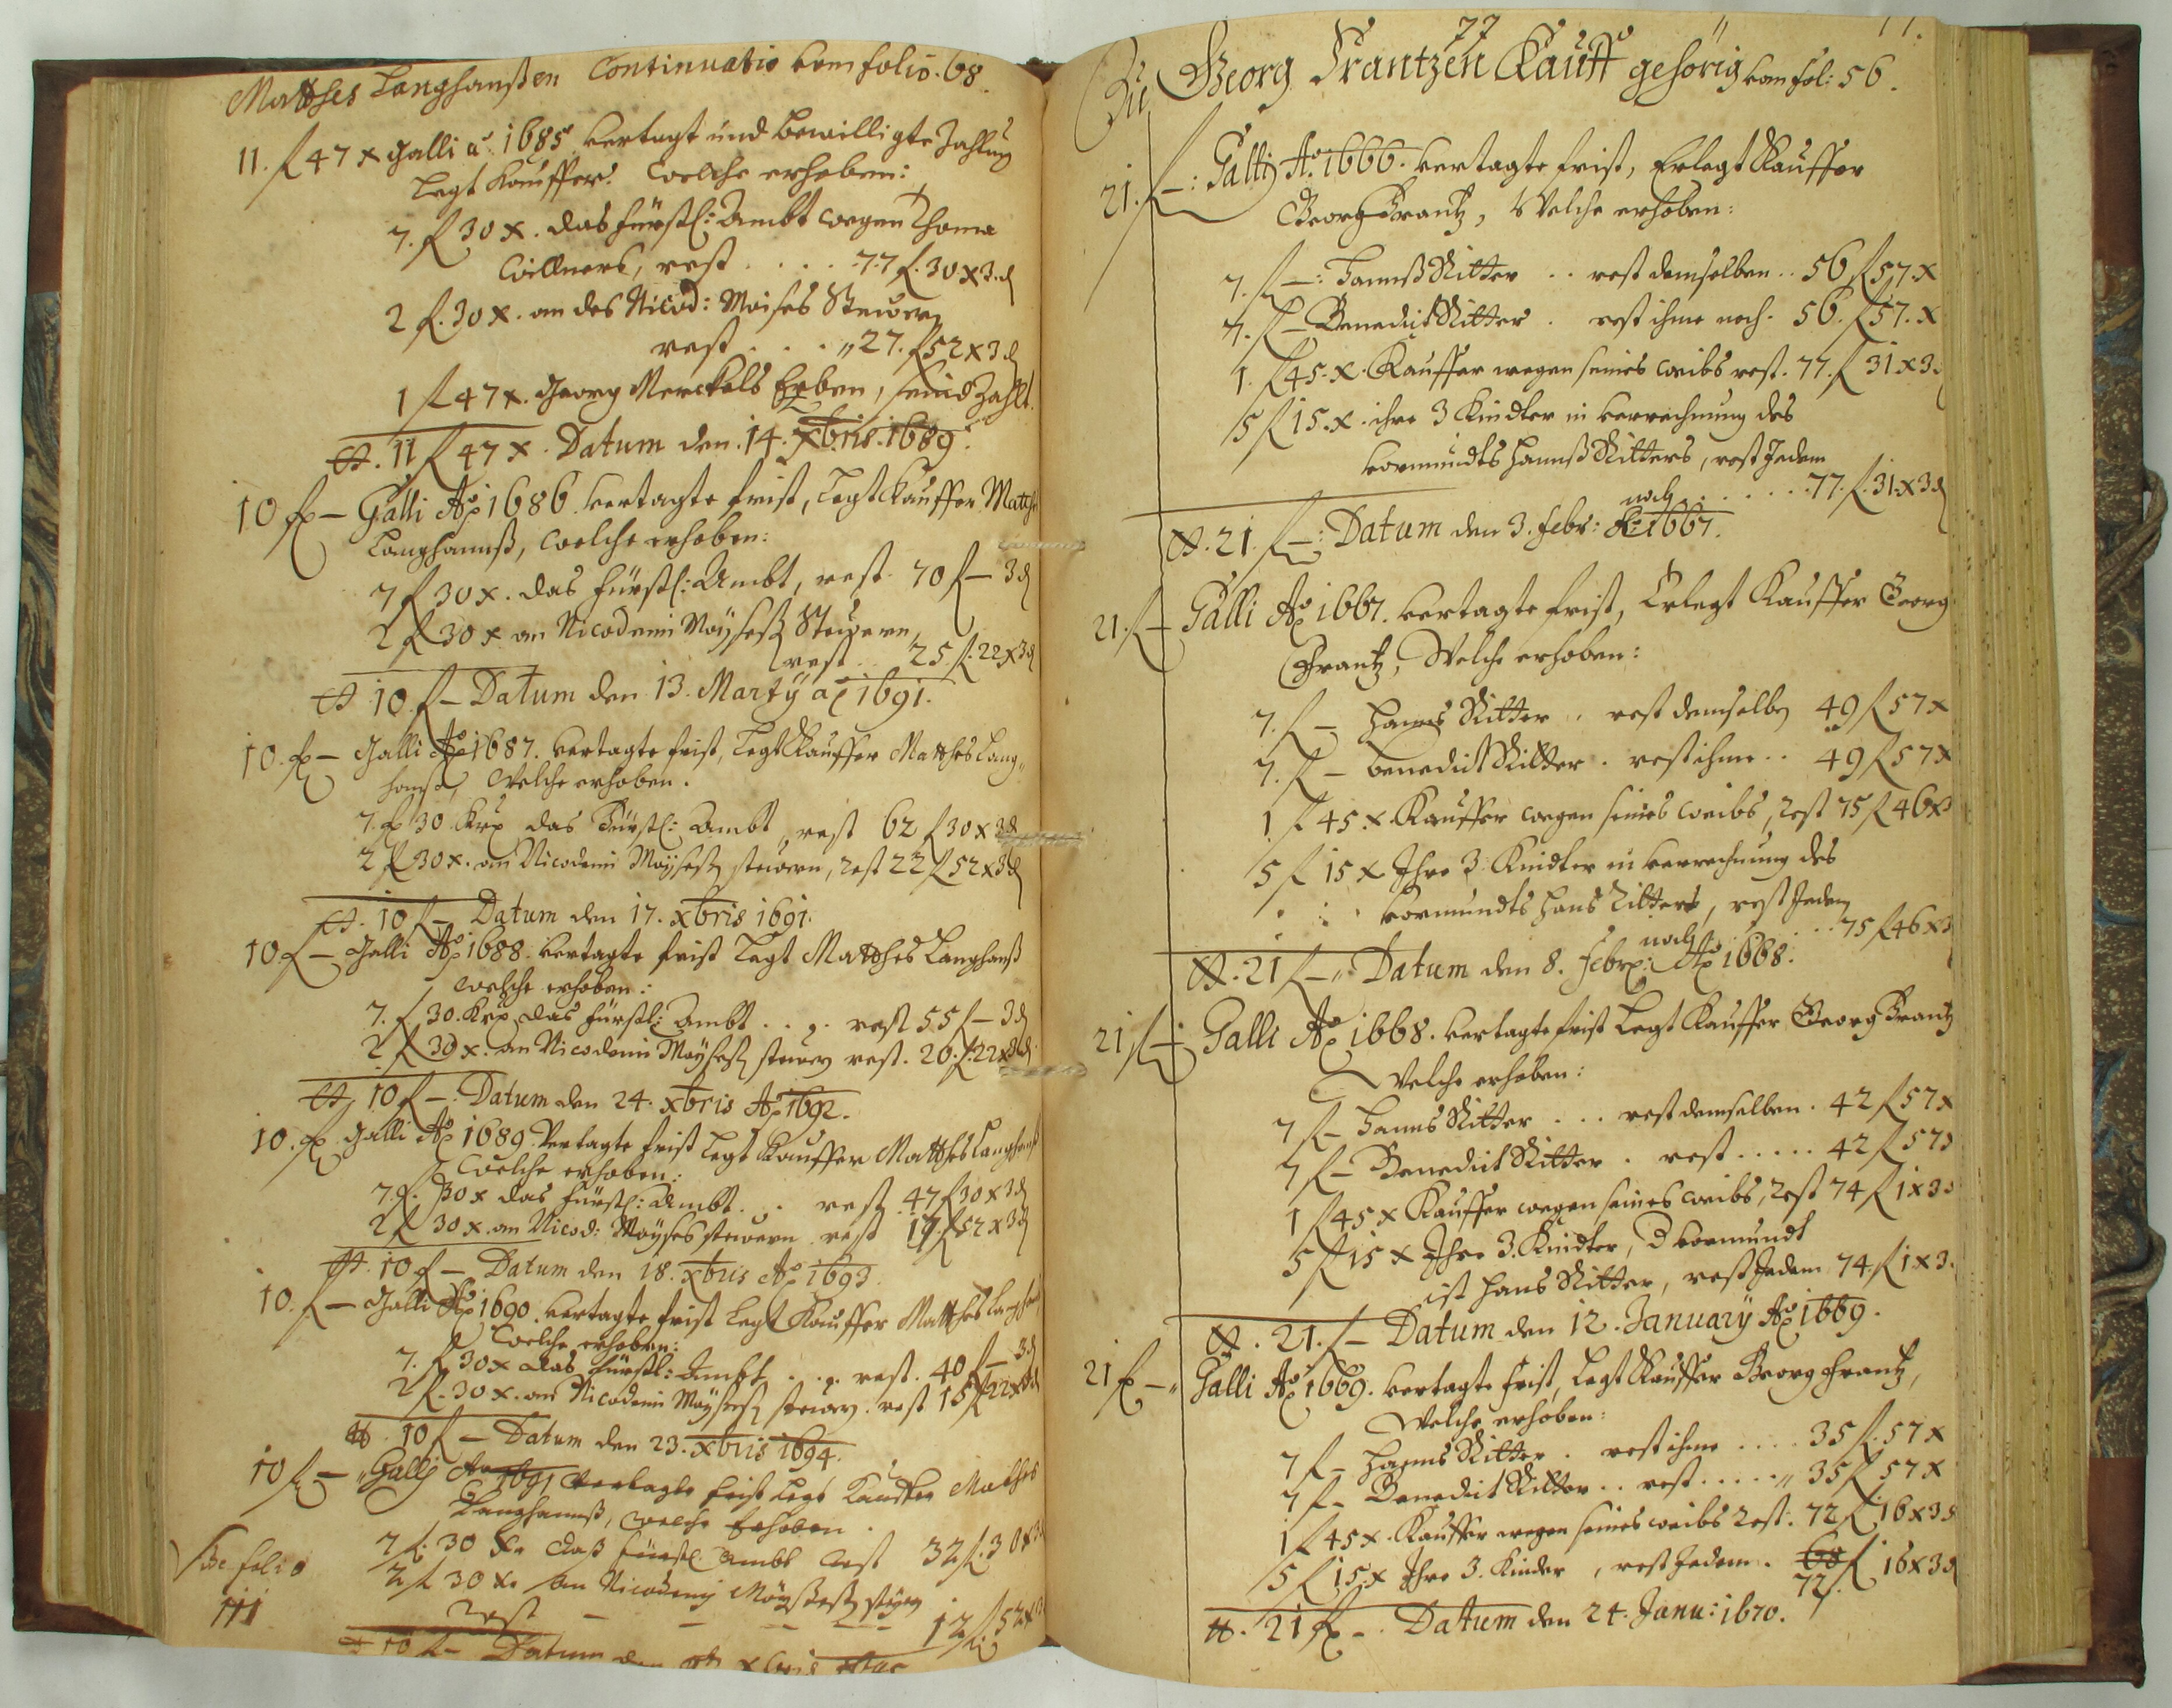 Matthes Langhanßen Continuatio vom folio. 68.
11. f 47 x Galli aō. 1685 vertagt und bewilligte Zahlung
Legt Kauffer. welche erhoben:
7. f 30 x. das fürstl: Ambt wegen Thoma
Willners, rest . . . . 77 f. 30 x 3. d
2 f. 30 x. an des Nicod: Moises Steuern
rest . . . „ 27. f 52 x 3 d
1 f 47 x. Georg Merckels Erben, seind Zahlt.
tt. 11 f 47 x. Datum den. 14. Xbris. 1689.
10 f – Galli Aō 1686. vertagte frist, Legt Kauffer Matthes
Langhannß, welche erhoben:
7 f 30 x. das fürstl: Ambt, rest 70 f – 3 d
2 f 30 x an Nicodemi Moysesß Steuern
rest . . 25. f. 22 x 3 d
tt 10. f – Datum den 13. Martÿ aō 1691.
10. f – Galli Aō 1687. vertagte frist, Legt Kauffer Matthes Lang„
hanß, welche erhoben.
7. f 30 Krx das Fürstl: Ambt, rest 62 f 30 x 3 d
2 f 30 x. an Nicodemi Moysesß steuern, rest 22 f 52 x 3 d
tt. 10 f – Datum den 17. Xbris 1691.
10. f – Galli Aō 1688. vertagte frist Legt Matthes Langhanß
welche erhoben:
7. f 30. Krx das fürstl: Ambt . . . rest 55 f – 3 d
2 f 30 x. an Nicodemi Moysesß steuern rest. 20. f. 22 x 3 d
tt. 10 f –. Datum den 24. Xbris Aō 1692.
10. f. Galli Aō 1689. Vertagte frist Legt Kauffer Matthes Langhanß
welche erhoben:
7. f. 30 x das fürstl: Ambt . . rest 47 f 30 x 3 d
2 f 30 x. an Nicod: Moyses steuern rest 17 f 52 x 3 d
tt. 10 f – Datum den 18. Xbris Aō 1693.
10. f – Galli Aō 1690. vertagte frist Legt Kauffer Matthes Langhanß
welche erhoben:
7. f 30 x das fürstl: Ambt . . . rest. 40 f – 3 d
2 f. 30 x. an Nicodemi Moysesß steuern. rest 15 f 22 x 3 d
tt. 10 f – Datum den 23. Xbris 1694.
10 f – „ Gallj Ao 1691 Vertagte frist Legt Kauffer Mathes
Langhannß, welche Erhoben.
7 f. 30 Xr. daß fürstl. Ambt rest 32 f. 30 x 3 d
2 f 30 Xr an Nicodemj Mößeß steuern
rest – – – – 12 f. 52 x 3
Sie folio
111
tt 10 f – Datum den Xbris
77
Zu Georg Frantzen Kauff gehörig vom fol: 56.
21. f –: Galli Aō. 1666. vertagte frist, Erlegt Kauffer
Georg Frantz, Welche erhoben:
7. f –: Hannß Ritter . . rest demselben . . 56 f 57. x
7. f – Benedict Ritter . rest ihme noch. 56. f 57. x
1. f 45. x. Kauffer wegen seines weibs rest. 77. f 31. x 3.
5 f 15. x. ihre 3 Kindter in verrechnung des
vormundts Hannß Ritters, rest Jedem
noch . . . . . 77. f. 31. x 3 d
tt. 21. f –: Datum den 3. febr: Aō 1667.
21. f – Galli Aō 1667. vertagte frist, Erlegt Kauffer Georg
Frantz, Welche erhoben:
7. f – Hanns Ritter . rest demselben 49 f 57 x
7. f – benedict Ritter . rest ihme . . 49 f 57 x
1 f 45. x. Kauffer wegen seines weibs, rest 75 f 46 x 3
5 f 15 x Ihre 3 Kindter in verrechnung des
vormundts Hans Ritters, rest Jedem
noch . . . . . 75 f 46 x 3
tt. 21 f – „ Datum den 8. febr: Aō 1668.
21 f –: Galli Aō 1668. vertagte frist Legt Kauffer Georg Frantz
Welche erhoben:
7 f – Hanns Ritter . . . rest demselben. 42 f 57 x
7 f – Benedict Ritter . rest . . . . . 42 f 57 x
1 f 45 x Kauffer wegen seines weibs, rest 74 f 1 x 3 d
5 f 15 x Ihre 3. Kindter, d vormundt
ist Hans Ritter, rest Jedem 74 f 1 x 3.
tt. 21. f – Datum den 12. Januarÿ Aō 1669.
21 f – „ Galli Aō 1669. vertagte frist, Legt Kauffer Georg Frantz,
Welche erhoben:
7 f – Hanns Ritter . rest ihme . . . . 35 f. 57 x
7 f – Benedict Ritter . . rest . . . . . „ 35 f 57 x
1 f 45 x. Kauffer wegen seines weibs rest. 72 f 16 x 3 d
5 f 15. x Ihre 3. Kinder, rest Jedem . 68 f 16 x 3 d
72.
tt. 21 f –. Datum den 24. Janu: 1670.